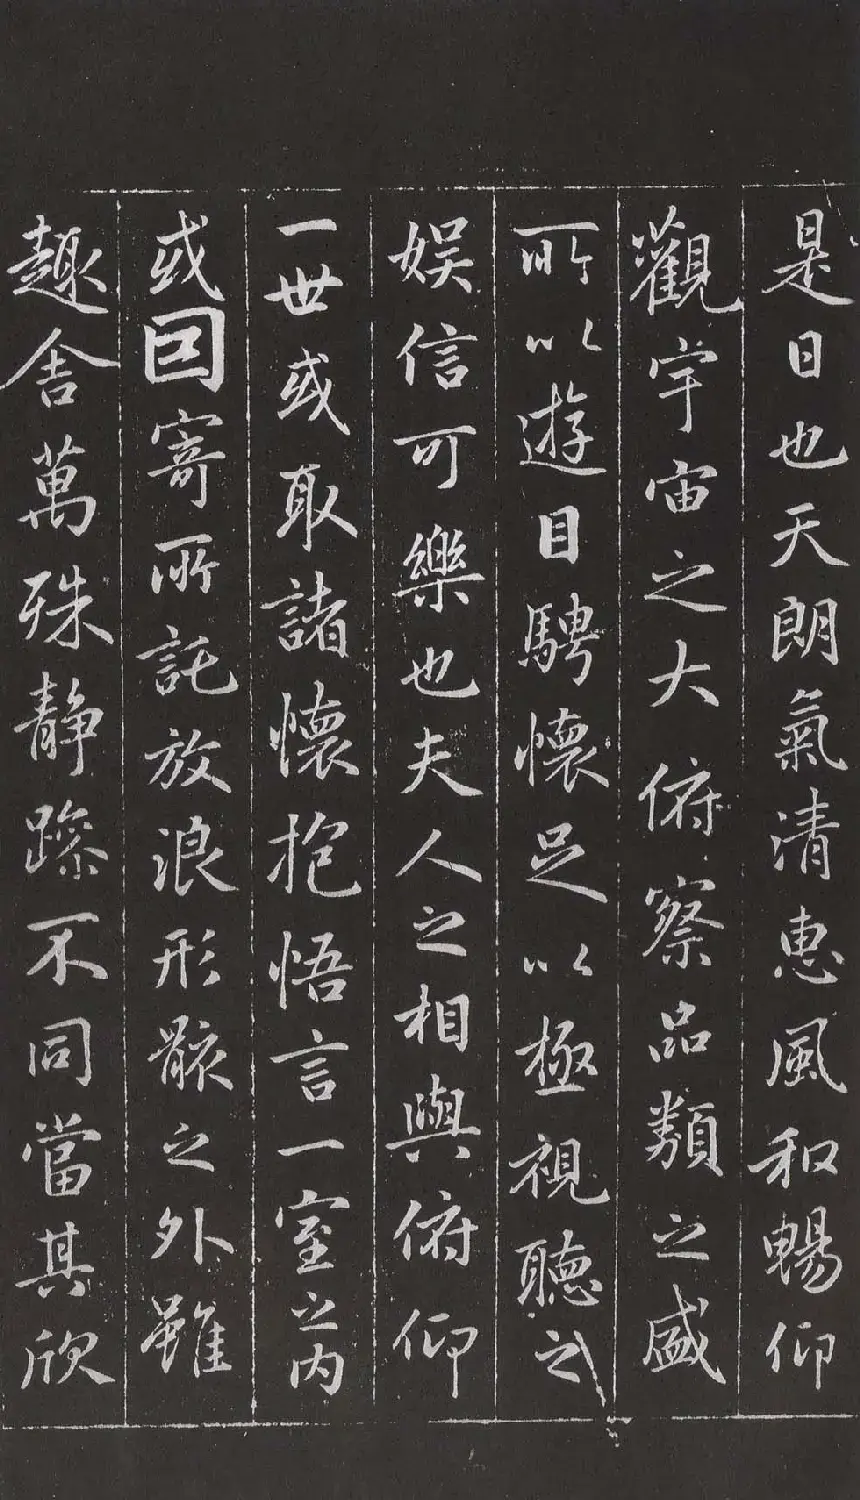 是日也天朗氣清惠風和暢仰
觀宇宙之大俯察品類之盛
所以遊目騁懷足以極視聽之
娛信可樂也夫人之相與俯仰
一世或取諸懷抱悟言一室之內
或因寄所託放浪形骸之外雖
趣舍萬殊靜躁不同當其欣